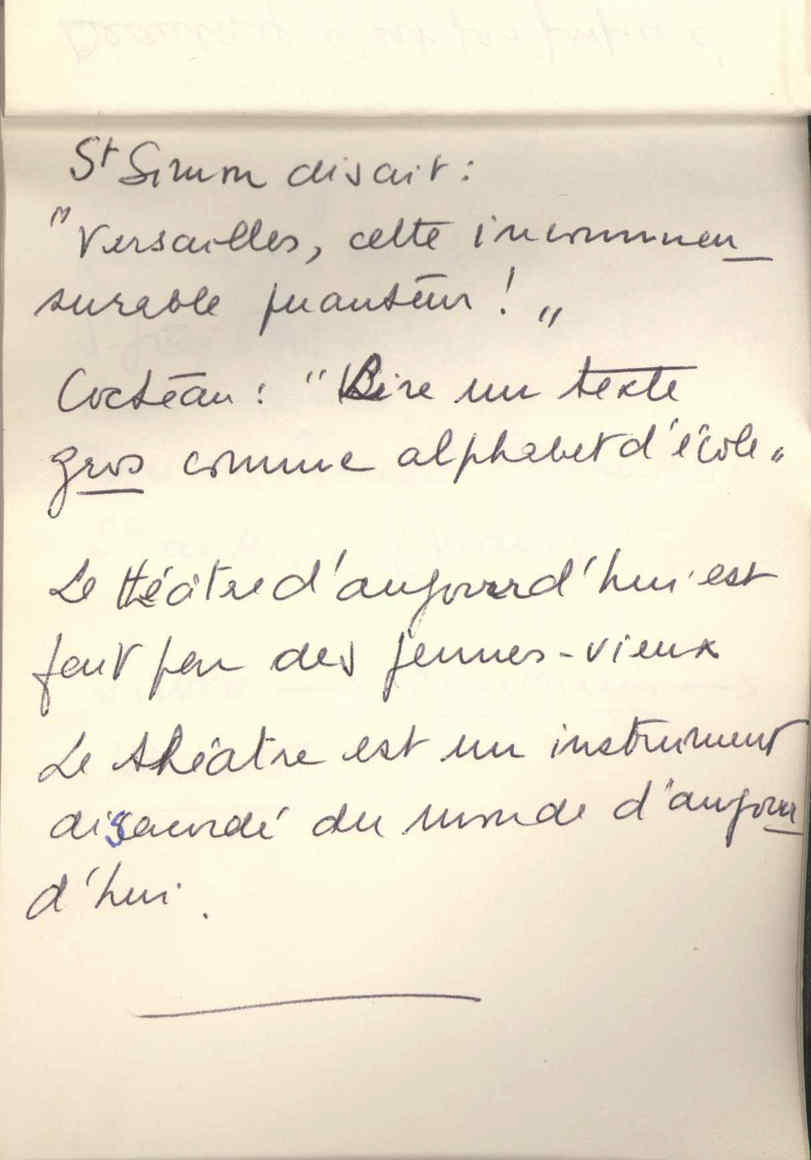 St Simon disait :
"Versailles, cette incommen
surable puanteur ! „
Cocteau : "Lire un texte
gros comme alphabet d'école „
Le théâtre d'aujourd'hui est
fait par des jeunes-vieux
Le théâtre est un instrument
disacordé du monde d'aujour
d'hui.